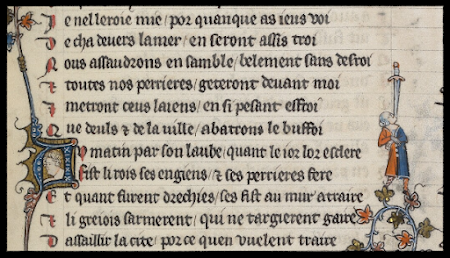 Je nel leroie mie / por quanque as ieus voi
De cha devers la mer / en seront assis troi
Nous assaudrons en samble / belement sans desroi
⁊ toutes nos perrieres / geteront devant moi
Si metront ceus laiens / en si pesant effroi
Que deuls ⁊ de la uille / abatrons le buffoi
Av matin par son laube / quant le ior lor esclere
Fist li rois ses engiens / ⁊ ses perrieres fere
Et quant furent drechies / ses fist au mur atraire
⁊ li greiois sarmerent / qui ne targierent gaire
Dassaillir la cite / por ce quen vuelent traire